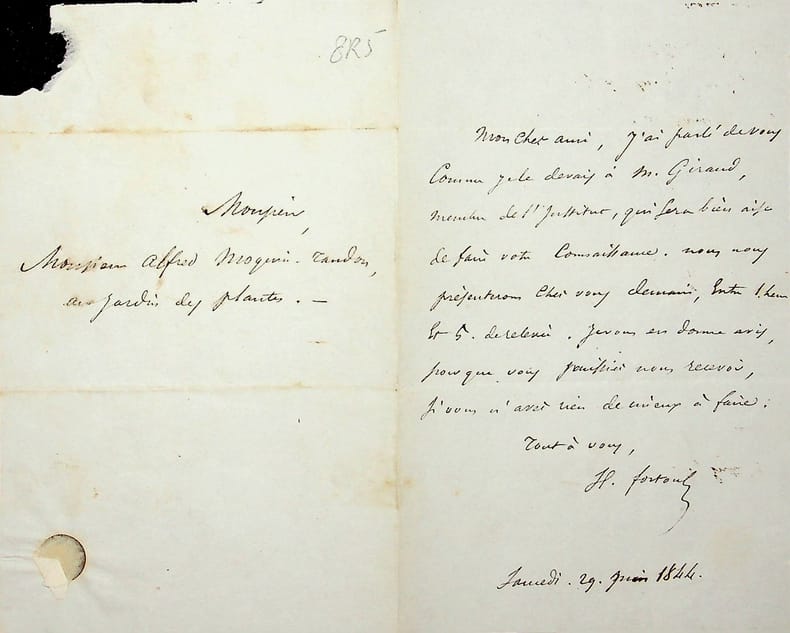 8R5
Monsieur,
Monsieur Alfred Moquin-Tandon,
au jardin des plantes. —
Mon cher ami, j'ai parlé de vous
Comme je le devais à M. Giraud,
membre de l'Institut, qui sera bien aise
de faire votre Connaissance. nous nous
présenterons chez vous demain, Entre 1 heure
Et 5. de relevée. Je vous en donne avis,
pour que vous puissiez nous recevoir,
si vous n'avez rien de mieux à faire.
Tout à vous,
H. fortoul
Samedi. 29. juin 1844.